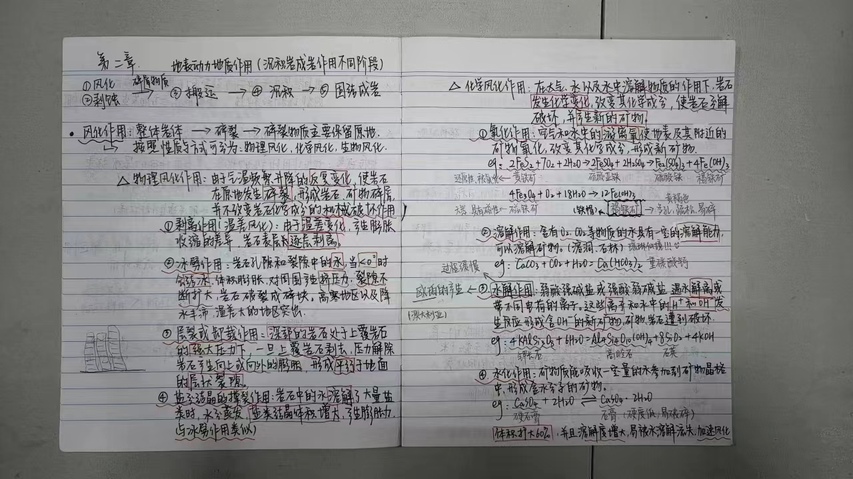 第二章 地表动力地质作用(沉积岩成岩作用不同阶段)
①风化
②剥蚀 碎屑物质 → ③搬运 → ④沉积 → ⑤固结成岩
• 风化作用:整体岩体 → 碎裂 → 碎裂物质主要保留原地.
按照性质与方式可分为:物理风化,化学风化,生物风化.
△ 物理风化作用:由于气温频繁升降的反复变化,使岩石
在原地发生碎裂,形成岩石、矿物碎屑,
并不改变岩石化学成分的机械破坏作用
①剥离作用(温差风化):由于温差变化,引起膨胀
收缩的差异,岩石表层逐层剥离。
②冰劈作用:岩石孔隙和裂隙中的水,当<0°时
会结冰,体积膨胀,对周围产生挤压力,裂隙不
断扩大,岩石碎裂成碎块,高寒地区以及降
水丰沛 温差大的地区突出.
③层裂或卸载作用:深部的岩石处于上覆岩石
的强大压力下,一旦上覆岩石剥去,压力解除
岩石产生向上或向外的膨胀,形成平行于地面
的层状裂隙.
④盐分结晶的撑裂作用:岩石中的水溶解了大量盐
类时,水分蒸发,盐类结晶体积增大,产生膨胀力.
与冰劈作用类似)
△ 化学风化作用:在大气、水以及水中溶解物质的作用下,岩石
发生化学变化,改变其化学成分,使岩石分解
破坏,并产生新的矿物.
①氧化作用:空气和水中的游离氧使地表及其附近的
矿物氧化,改变其化学成分,形成新矿物.
eg:2FeS₂+7O₂+2H₂O→2FeSO₄+2H₂SO₄→Fe₂(SO₄)₃→4Fe(OH)₃
黄铁矿 硫酸亚铁 硫酸铁 褐铁矿
4Fe₃O₄+O₂+18H₂O→12Fe(OH)₃
磁铁矿 (铁帽)← 褐铁矿 → 黄褐色
②溶解作用:含有O₂、CO₂等物质的水具有一定的溶解能力,
可以溶解矿物.(溶洞、石林)
eg:CaCO₃+CO₂+H₂O=Ca(HCO₃)₂ 重碳酸钙
过程缓慢
③水解作用:弱酸强碱盐或强酸弱碱盐 遇水解离成
带不同电荷的离子,这些离子和水中的H⁺和OH⁻发
生反应形成含OH⁻的新矿物,矿物岩石遭到破坏.
(澳大利亚)
eg:4KAlSi₃O₈+6H₂O=Al₄Si₄O₁₀(OH)₈+8SiO₂+4KOH
钾长石 高岭石 石英
④水化作用:矿物质能吸收一定量的水参加到矿物晶格
中,形成含水分子的矿物.
eg:CaSO₄+2H₂O⇌CaSO₄·2H₂O
硬石膏 石膏(硬度低,易破碎)
体积扩大60%,并且溶解度增大,易被水溶解流失,加速风化